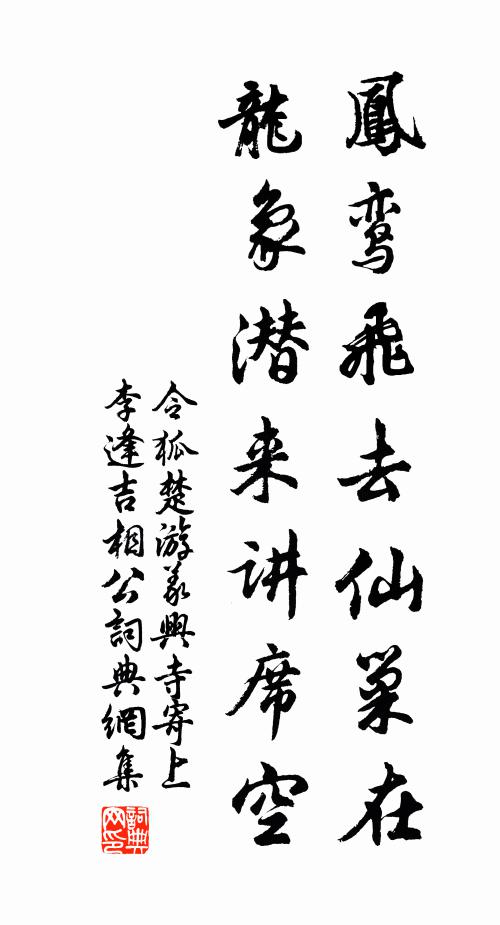 鳳鸾飛去仙巢在
龍象潜来讲席空
令狐楚游义興寺寄上
李逢吉相公詞典網集
詞典
网印